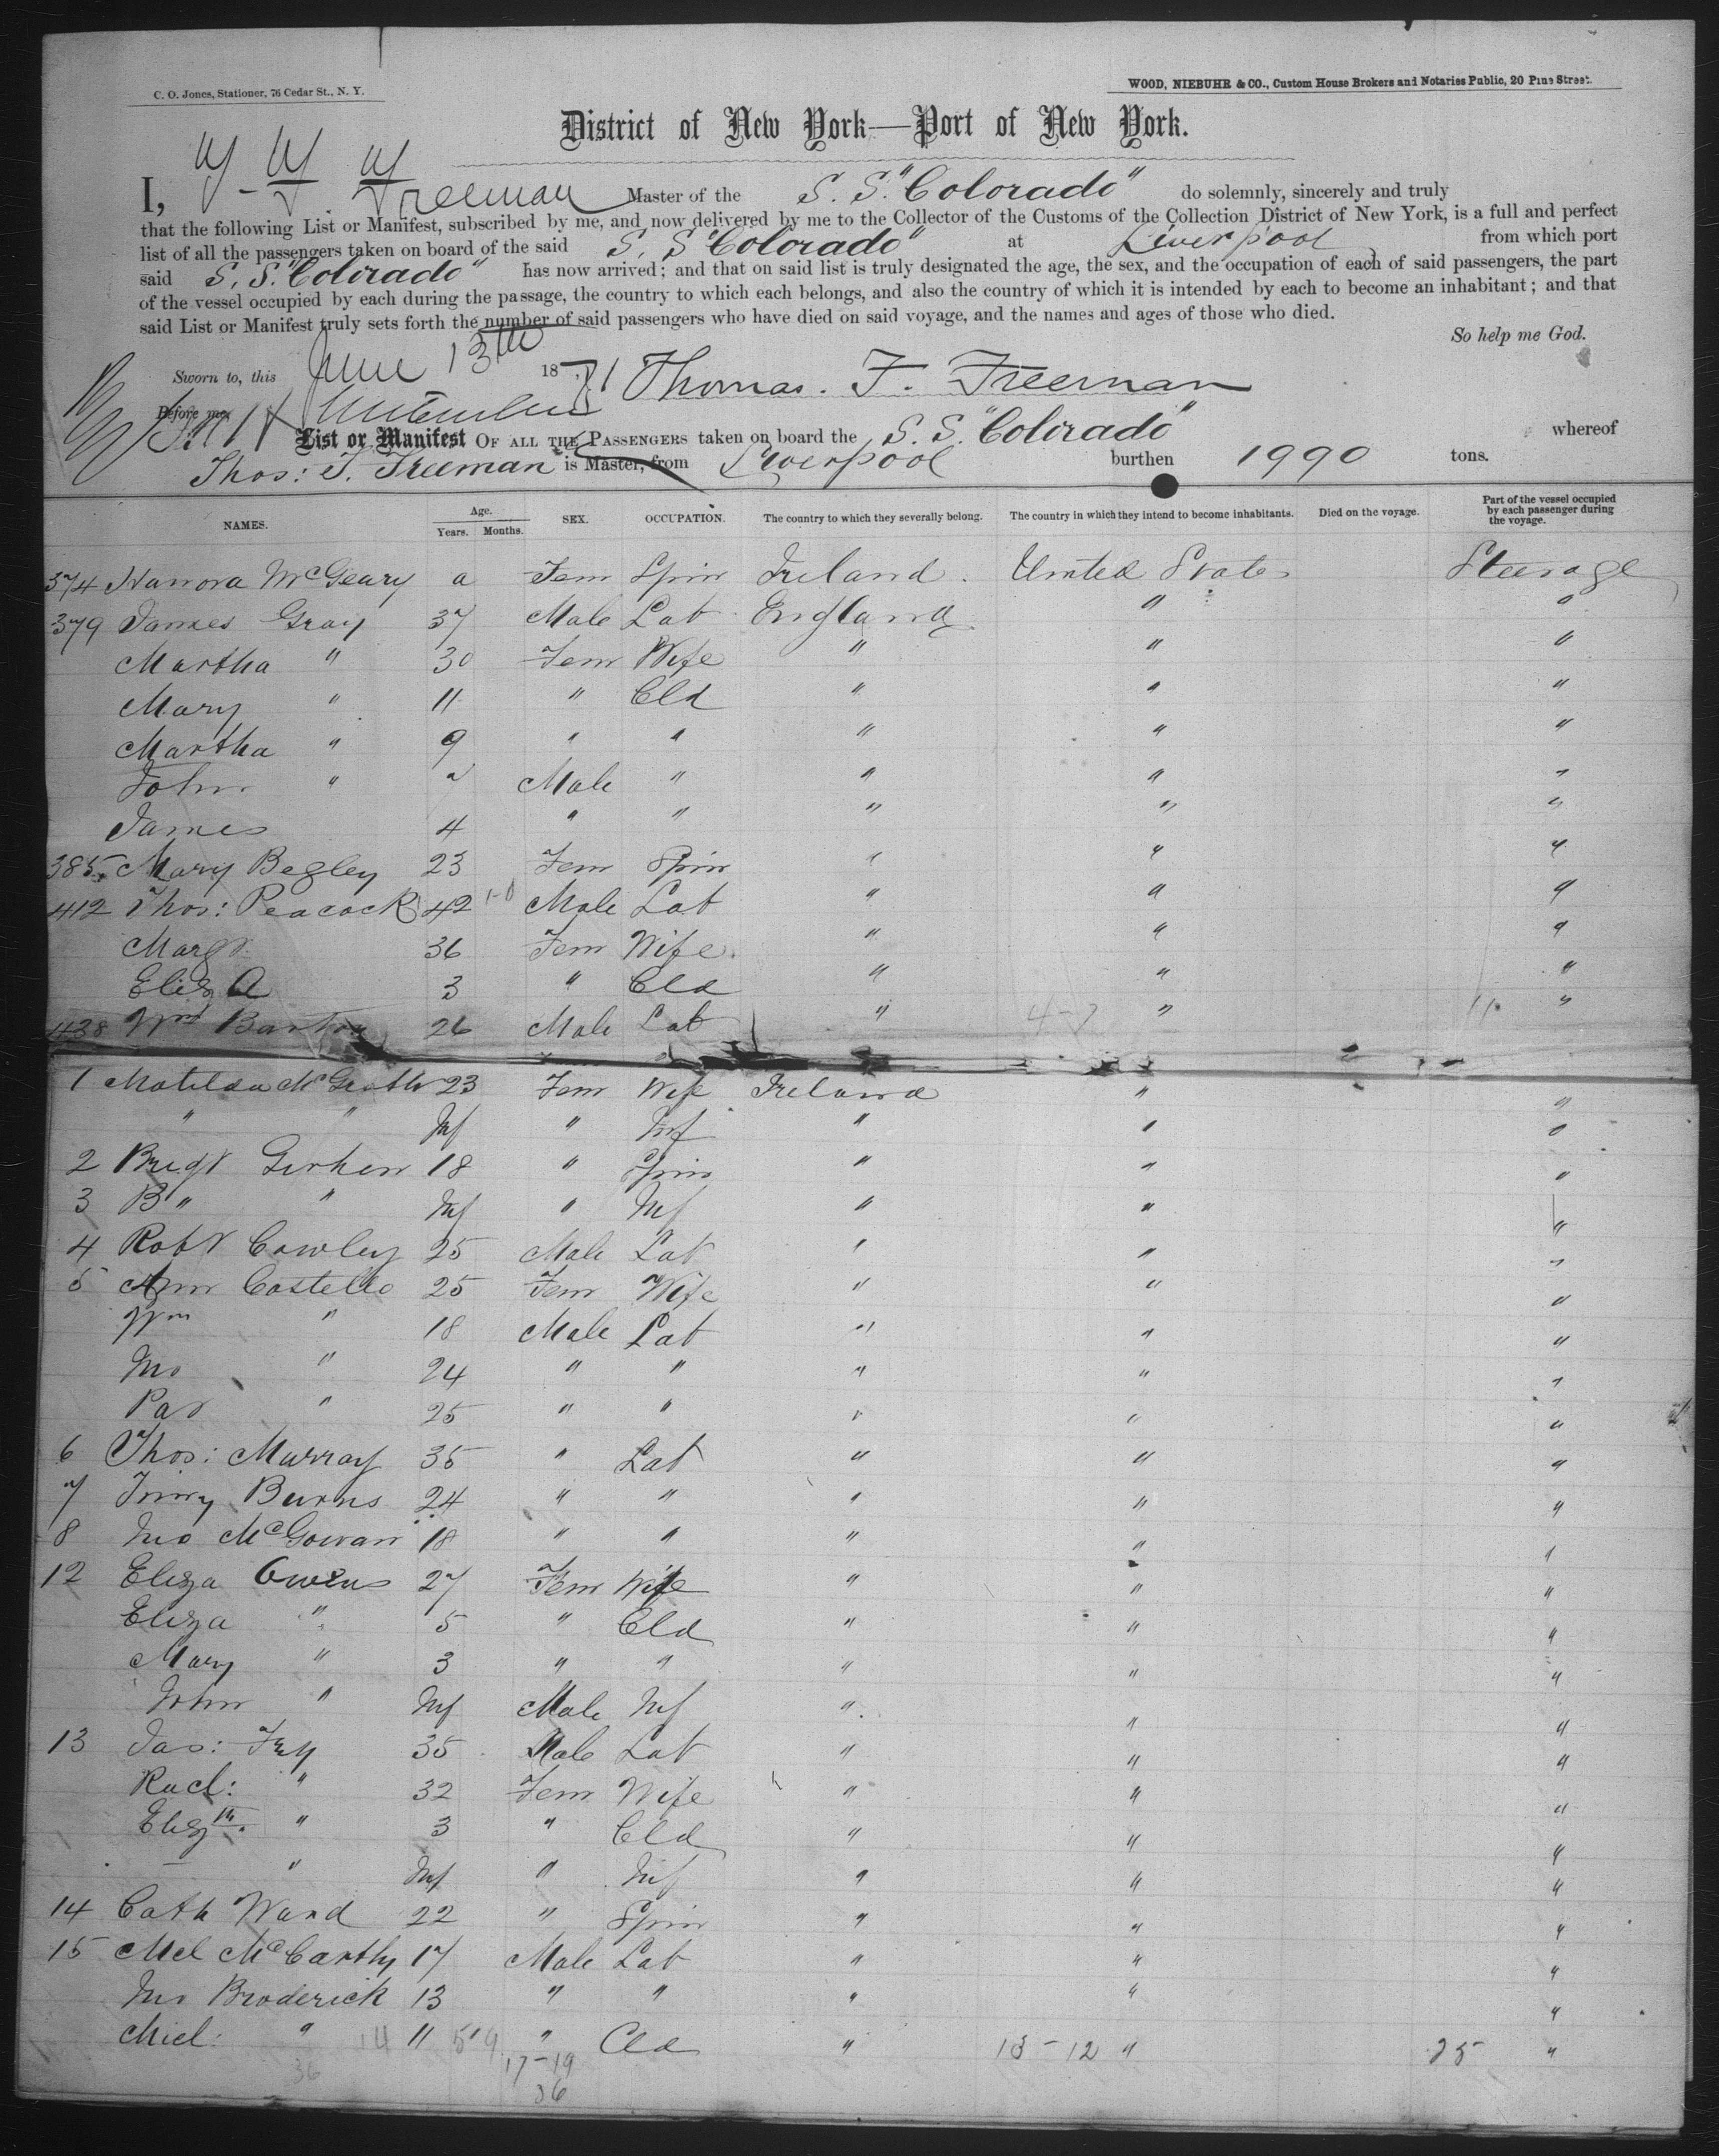 C. O. Jones, Stationer, 76 Cedar St., N. Y.
WOOD, NIEBUHR & CO., Custom House Brokers and Notaries Public, 20 Pine Street.
District of New York—Port of New York.
I, T. F. Freeman Master of the S. S. "Colorado" do solemnly, sincerely and truly
that the following List or Manifest, subscribed by me, and now delivered by me to the Collector of the Customs of the Collection District of New York, is a full and perfect
list of all the passengers taken on board of the said S. S "Colorado" at Liverpool from which port
said S. S. "Colorado" has now arrived; and that on said list is truly designated the age, the sex, and the occupation of each of said passengers, the part
of the vessel occupied by each during the passage, the country to which each belongs, and also the country of which it is intended by each to become an inhabitant; and that
said List or Manifest truly sets forth the number of said passengers who have died on said voyage, and the names and ages of those who died.
So help me God.
Sworn to, this June 13th 1871 Thomas. F. Freeman
Before me,
List or Manifest OF ALL THE PASSENGERS taken on board the S. S. "Colorado" whereof
Thos: F. Freeman is Master, from Liverpool burthen 1990 tons.
NAMES. Age. Years. Months. SEX. OCCUPATION. The country to which they severally belong. The country in which they intend to become inhabitants. Died on the voyage. Part of the vessel occupied by each passenger during the voyage.
374 Hanora McGeary a Fem Spin Ireland United States Steerage
379 James Gray 37 Male Lab England " "
Martha " 30 Fem Wife " " "
Mary " 11 " Cld " " "
Martha " 9 " " " " "
John " 7 Male " " " "
James 4 " " " " "
385 Mary Begley 23 Fem Spin " " "
412 Thos: Peacock 42 Male Lab " " "
Margt 36 Fem Wife " " "
Eliz A 3 " Cld " " "
438 Wm Barton 26 Male Lab " 4-7 " 11 "
1 Matilda McGrath 23 Fem Wife Ireland " "
" " Inf " Inf " " "
2 Bridgt 18 " Spin " " "
3 B " " Inf " Inf " " "
4 Robt Cowley 25 Male Lab " " "
5 Ann Costello 25 Fem Wife " " "
Wm " 18 Male Lab " " "
Jno " 24 " " " " "
Pat " 25 " " " " "
6 Thos: Murray 35 " Lab " " "
7 Burns 24 " " " " "
8 Jno McGowan 18 " " " " "
12 Eliza Owens 27 Fem Wife " " "
Eliza " 5 " Cld " " "
Mary " 3 " " " " "
John " Inf Male Inf " " "
13 Jas: Fry 35 Male Lab " " "
Racl: " 32 Fem Wife " " "
Elizth. " 3 " Cld " " "
— " Inf " Inf " " "
14 Cath Ward 22 " Spin " " "
15 Mcl McCarthy 17 Male Lab " " "
Jno Broderick 13 " " " " "
Micl: " 14 11 " Cld " 13-12 " 25 "
36 17-19
36